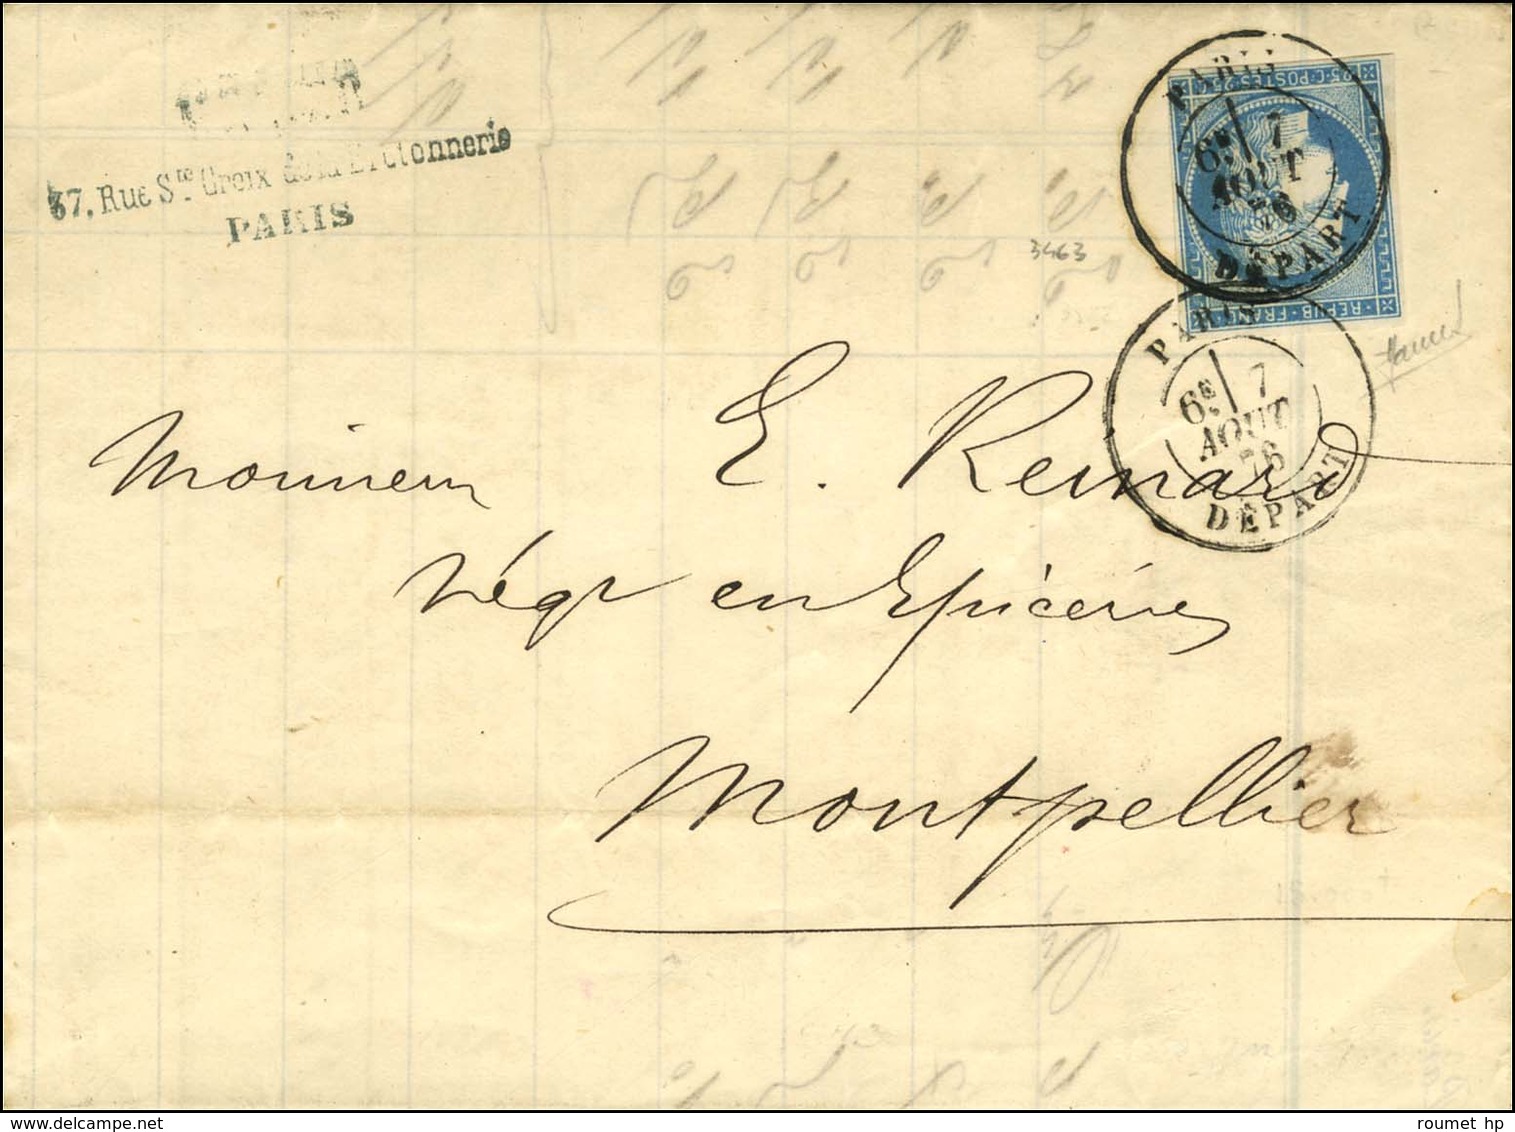 37, Rue Ste. Croix de la Bretonnerie
PARIS
25 C. POSTES 25 C.
REPUB. FRANC.
PARIS
6E 7
AOUT
76
DÉPART
PARIS
6E 7
AOUT
76
DÉPART
3463
Monsieur E. Reinard
Négt en Epiceries
Montpellier
roumet hp